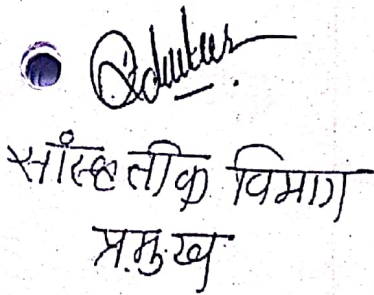 सांस्कृतीक विभाग
प्रमुख